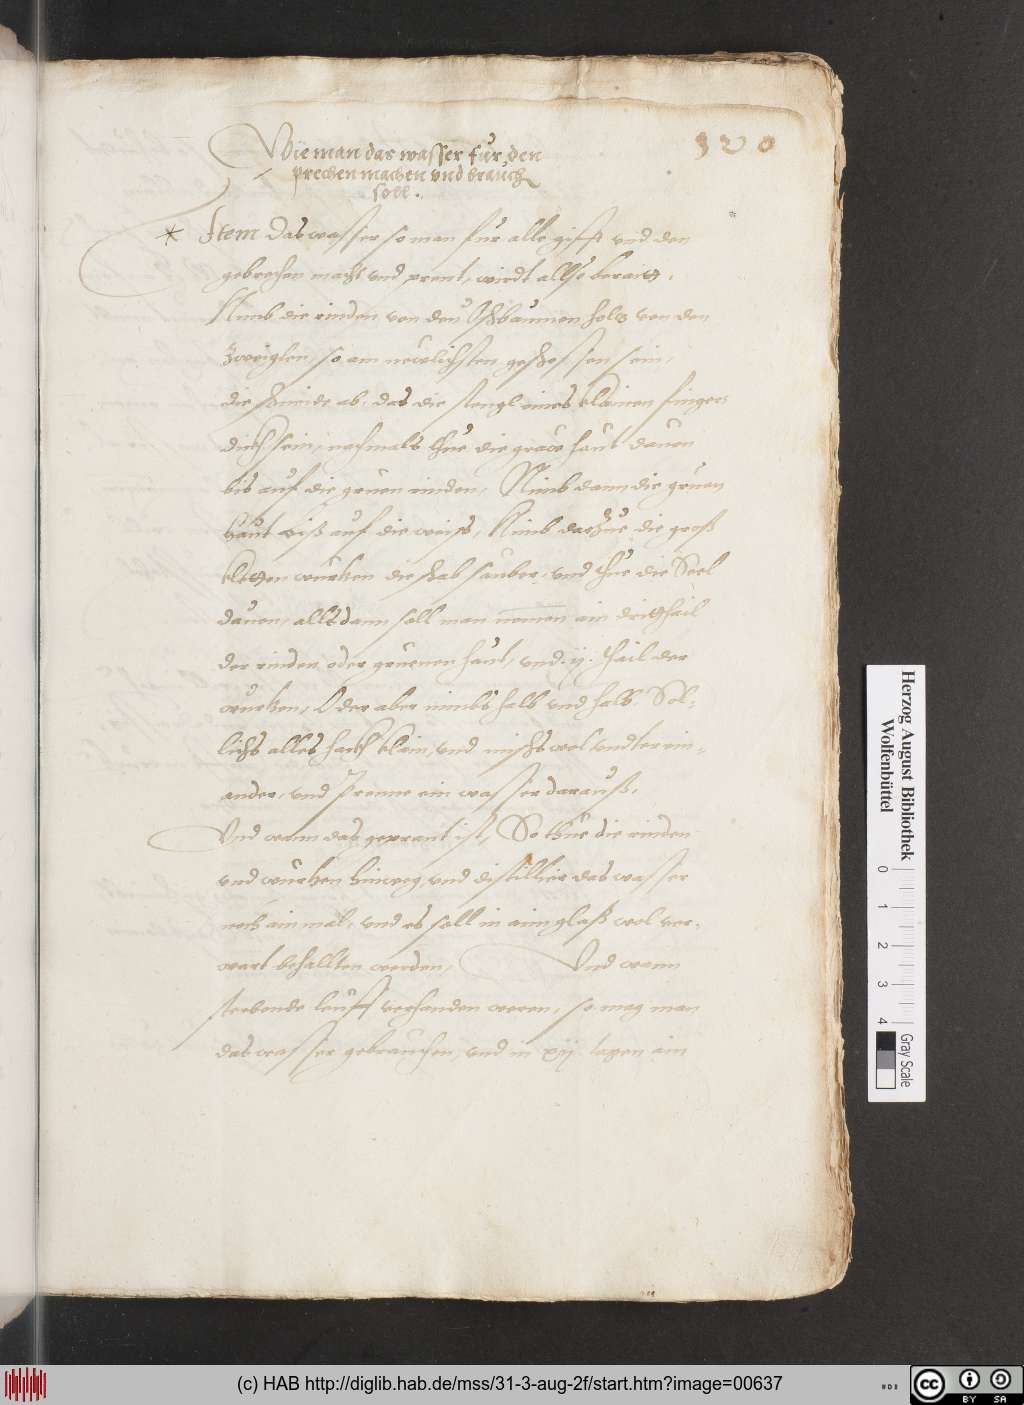 320
Wie man das wasser fur den
prechen machen und brauch
soll.
* Item das wasser so man fur alle gifft vnd den
gebrechen macht vnd prent, wirdt allso berait,
Nimb die rinden von den Eschbaumen holtz von den
zweiglen, so am newlichsten geschossen sein,
die schneide ab, das die stengl eines klainen fingers
dickh sein, nachmals thue die grawe haut dauon
bis auf die gruen rinden, Nimb dann die gruen
haut biß auf die weiss, Nimb darzue die groß
kletten wurtzen die schab sauber, vnd thue die Seel
dauon, allsdann soll man nemen ain dritthail
der rinden oder gruenen haut, vnd .ij. thail der
wurtzen, Oder aber nimbs halb vnd halb. Sol-
lichs alles hackh klain, vnd mischs wol vndterein-
ander, vnd prenne ein wasser darauß,
Vnd wann das geprant ist, So thue die rinden
vnd wurtzen hinweg, vnd distillier das wasser
noch ain mal, vnd es soll in aim glaß wol ver-
wart behallten werden, Vnd wann
sterbende leuff verhanden weren, so mag man
das wasser gebrauchen, vnd in xij tagen ain
Herzog August Bibliothek
Wolfenbüttel
0 1 2 3 4
Gray Scale
(c) HAB http://diglib.hab.de/mss/31-3-aug-2f/start.htm?image=00637
cc BY SA